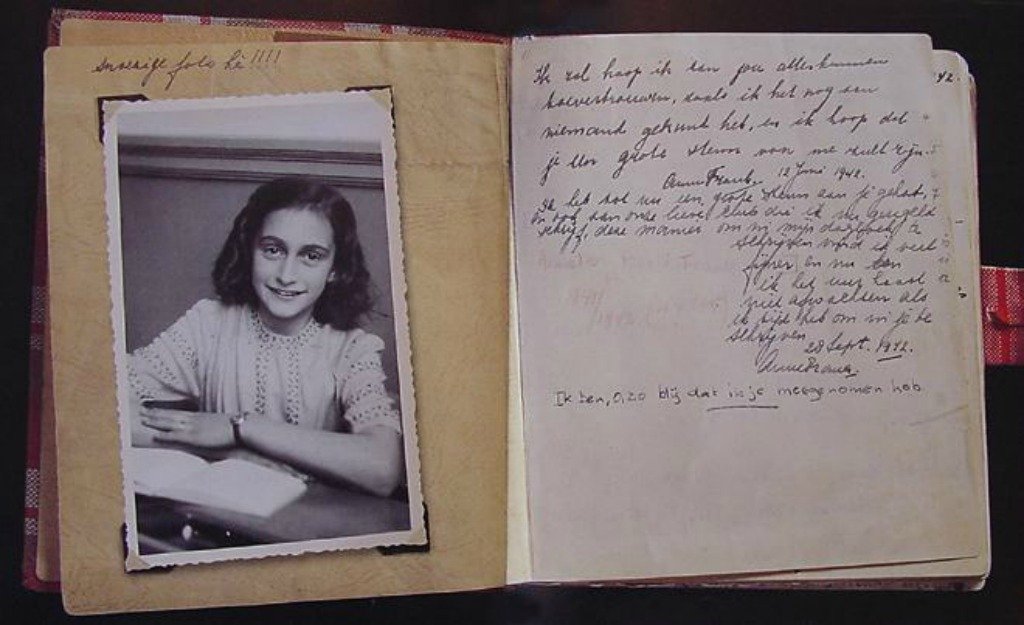 snoezige foto hè !!!!
Ik zal hoop ik aan jou alles kunnen
toevertrouwen, zoals ik het nog aan
niemand gekund heb, en ik hoop dat
je een grote steun voor me zult zijn.
Anne Frank. 12 Juni 1942.
Ik heb tot nu een grote steun aan je gehad,
en ook aan onze lieve club die ik nu geregeld
schrijf, deze manier om in mijn dagboek te
schrijven vind ik veel
fijner en nu kan
ik het uur haast
niet afwachten als
ik tijd heb om in je te
schrijven
28 Sept. 1942.
Anne Frank.
Ik ben, O, zo blij dat ik je meegenomen heb
42.